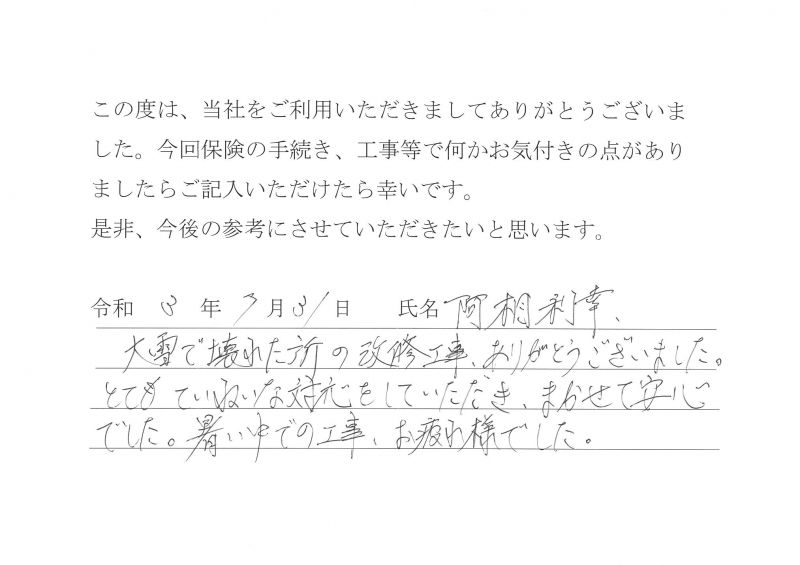 この度は、当社をご利用いただきましてありがとうございま
した。今回保険の手続き、工事等で何かお気付きの点があり
ましたらご記入いただけたら幸いです。
是非、今後の参考にさせていただきたいと思います。
令和 3 年 7 月 31 日 氏名 阿相利幸、
大雪で壊れた所の改修工事、ありがとうございました。
とてもていねいな対応をしていただき、まかせて安心
でした。暑い中での工事、お疲れ様でした。